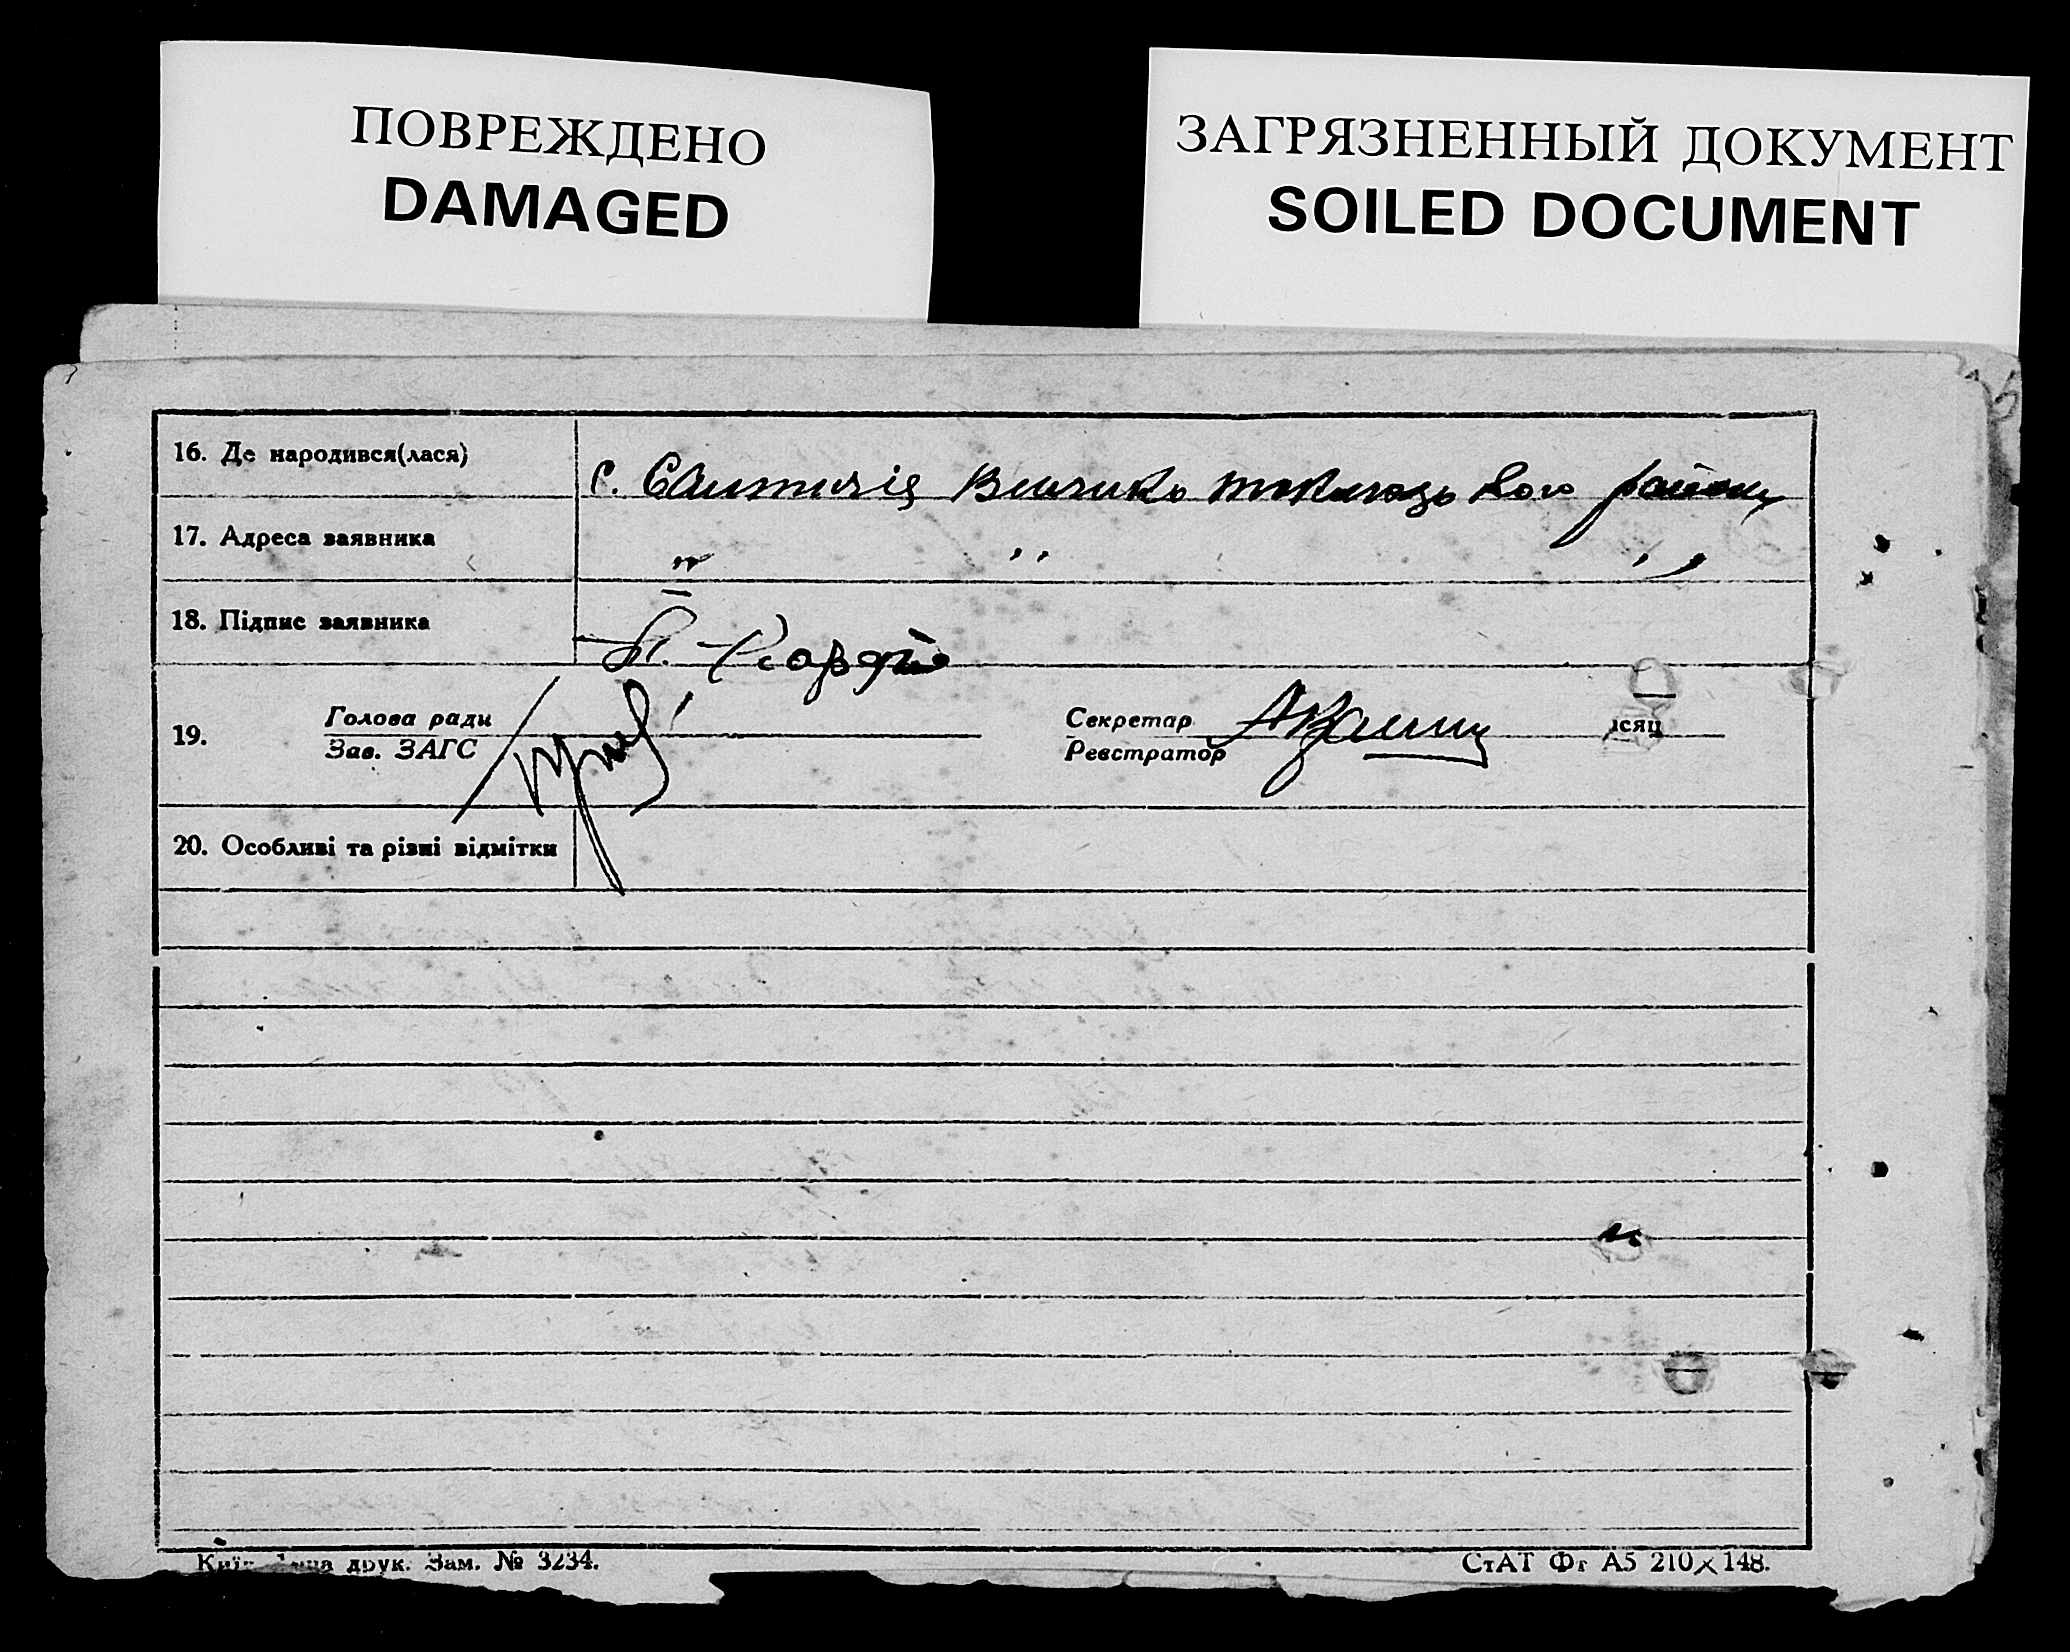 ПОВРЕЖДЕНО
DAMAGED
ЗАГРЯЗНЕННЫЙ ДОКУМЕНТ
SOILED DOCUMENT
16. Де народився(лася)
с. Велико токмацького району
17. Адреса заявника
" " "
18. Підпис заявника
П.
19. Голова ради
Зав. ЗАГС
Секретар
Реєстратор
ісяц
20. Особливі та різні відмітки
друк. Зам. № 3234.
СтАТ Фг А5 210×148.